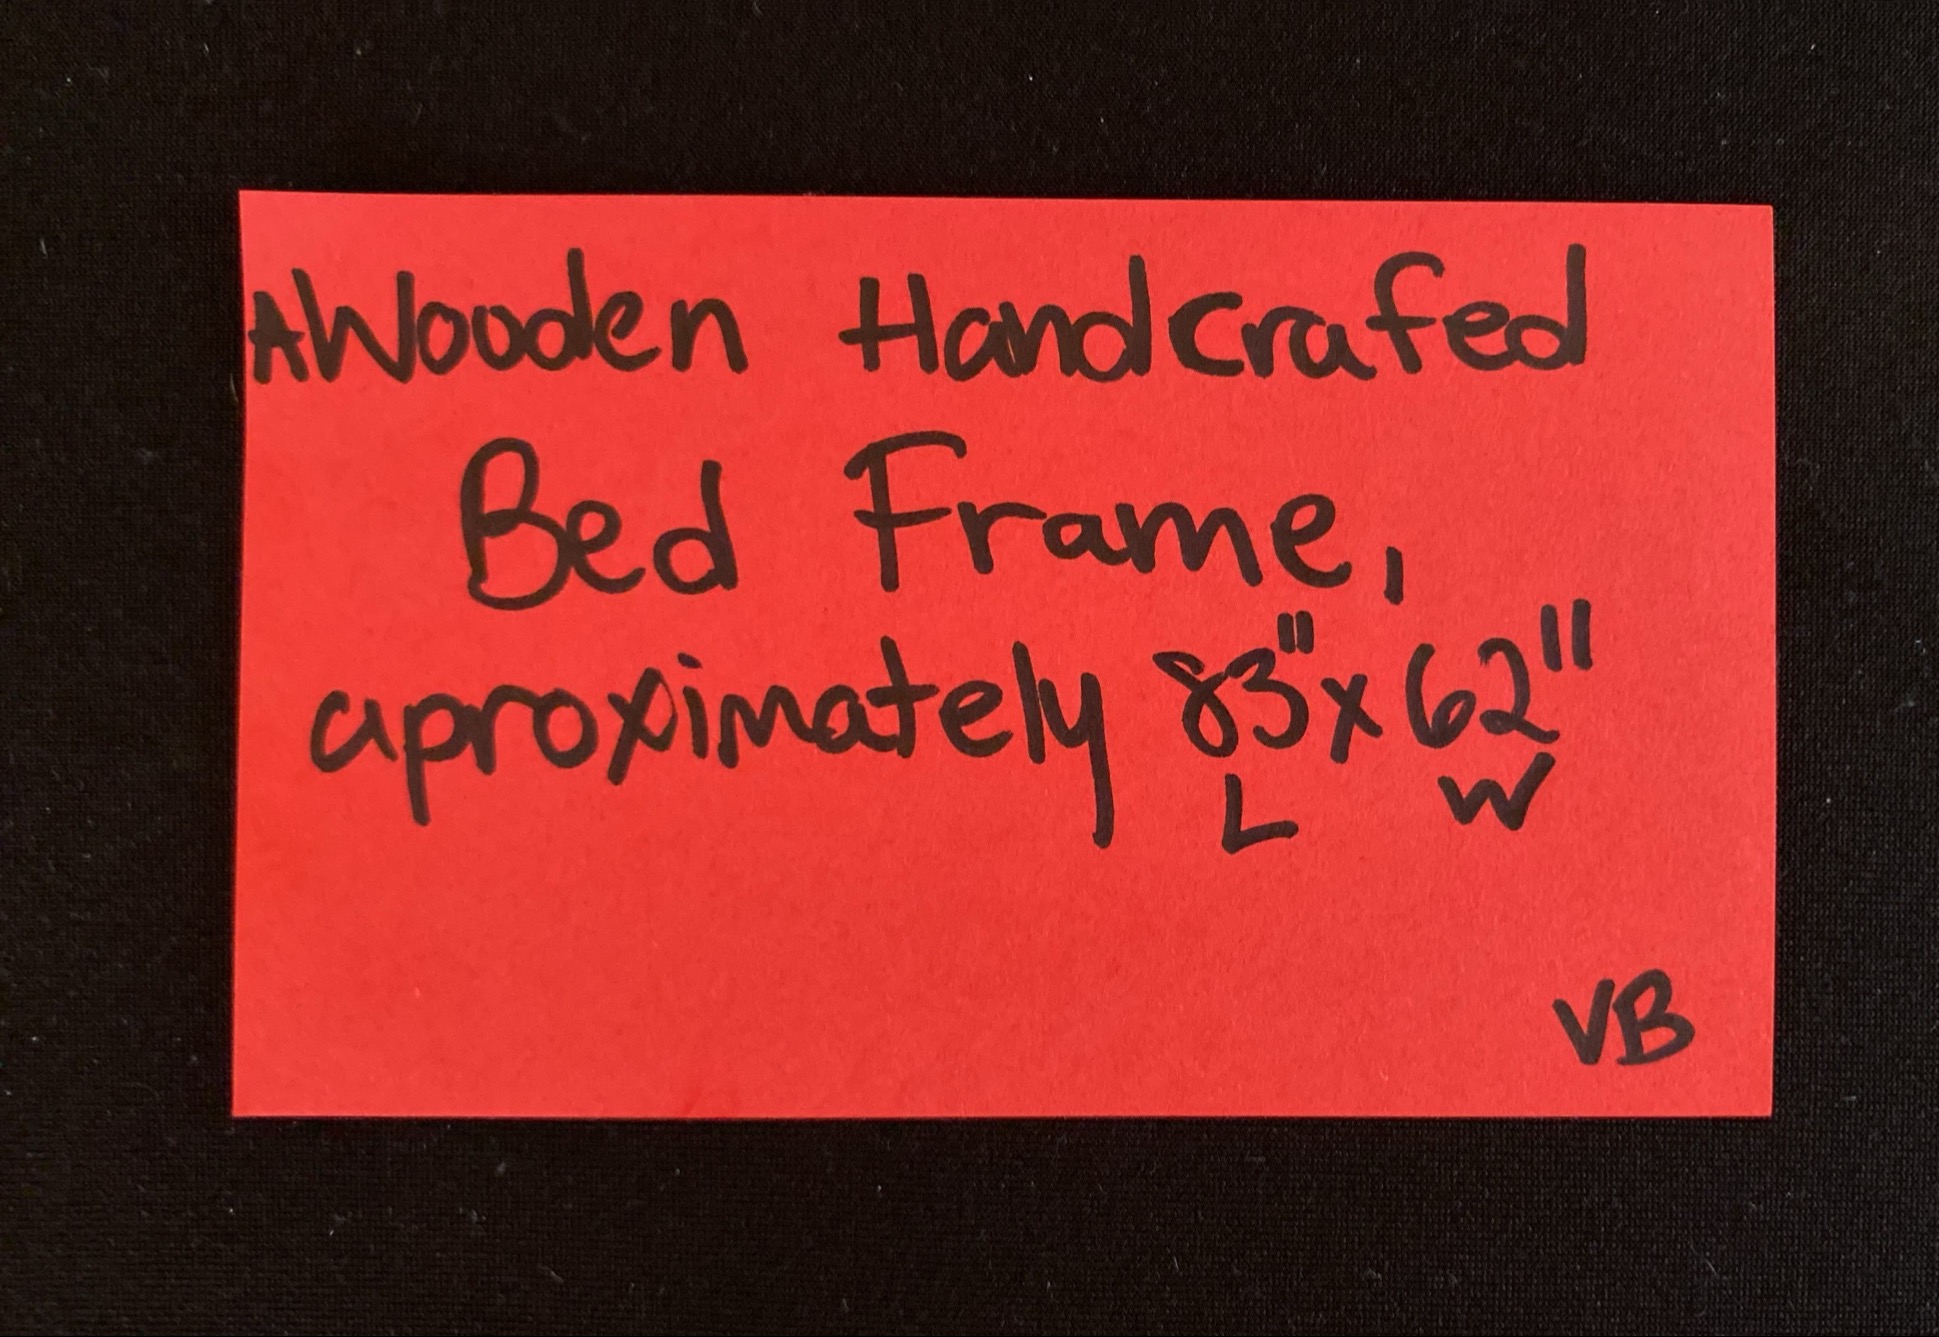 A Wooden Handcrafed
Bed Frame,
aproximately 83" x 62"
L W
VB